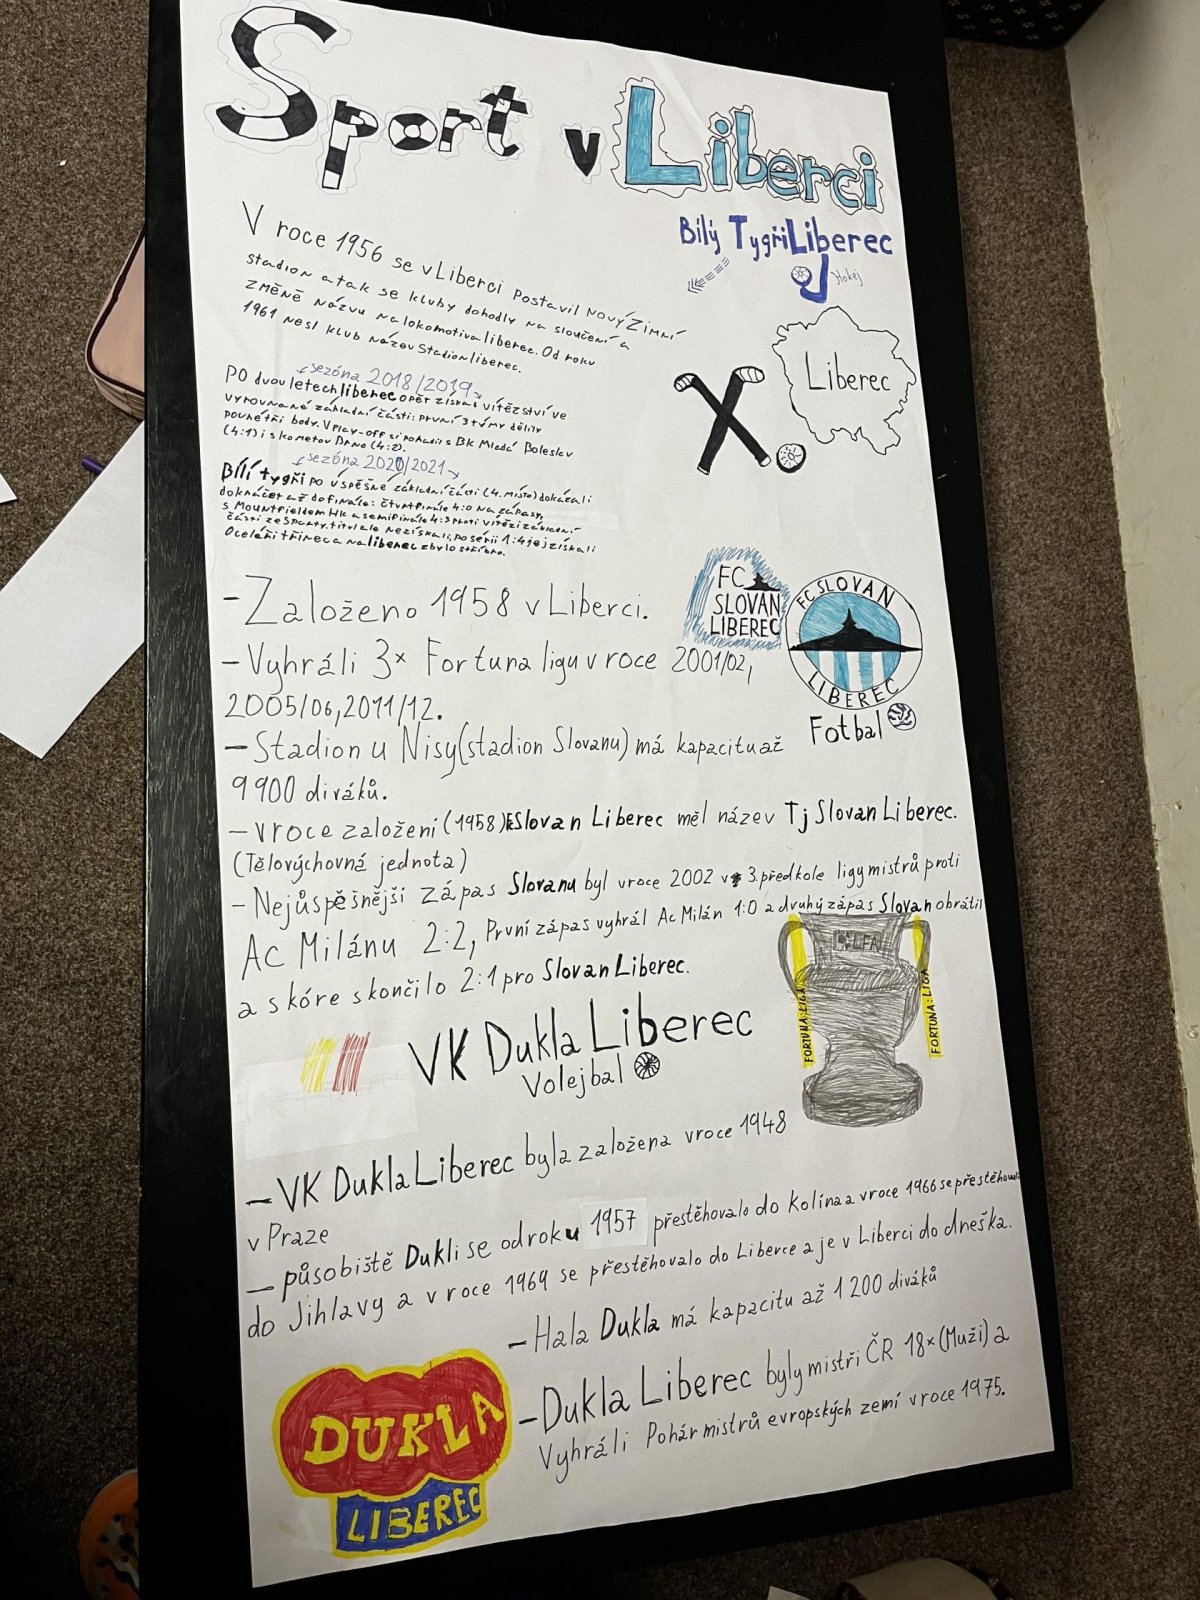 Sport v Liberci
Bílý Tygři Liberec
Hokej
V roce 1956 se v Liberci postavil Nový Zimní
stadion a tak se kluby dohodly na sloučení a
změně názvu na lokomotiva liberec. Od roku
1961 nesl klub název Stadion liberec.
Liberec
sezóna 2018/2019
Po dvou letech liberec opět získal vítězství ve
vyrovnané základní části: první 3 týmy dělily
pouhé tři body. V play-off si poradil s BK Mladá Boleslav
(4:1) i s kometou Brno (4:2).
sezóna 2020/2021
Bílí tygři po úspěšné základní části (4. místo) dokázali
dokráčet až do finále: čtvrtfinále 4:0 na zápasy,
s Mountfieldem HK a semifinále 4:3 proti vítězi základní
části ze Sparty. titul ale nezískali, po sérii 1:4 jej získali
Oceláři třinec a na liberec zbylo stříbro.
FC
SLOVAN
LIBEREC
FC SLOVAN
LIBEREC
Fotbal
- Založeno 1958 v Liberci.
- Vyhráli 3x Fortuna ligu v roce 2001/02,
2005/06, 2011/12.
- Stadion u Nisy (stadion Slovanu) má kapacitu až
9 900 diváků.
- v roce založení (1958) Slovan Liberec měl název Tj Slovan Liberec.
(Tělovýchovná jednota)
- Nejúspěšnější zápas Slovanu byl v roce 2002 v 3. předkole ligy mistrů proti
Ac Milánu 2:2, První zápas vyhrál Ac Milán 1:0 a druhý zápas Slovan obrátil
a skóre skončilo 2:1 pro Slovan Liberec.
FORTUNA:LIGA
FORTUNA:LIGA
VK Dukla Liberec
Volejbal
- VK Dukla Liberec byla založena v roce 1948
v Praze
- působiště Dukli se od roku 1957 přestěhovalo do Kolína a v roce 1966 se přestěhovalo
do Jihlavy a v roce 1969 se přestěhovalo do Liberce a je v Liberci do dneška.
- Hala Dukla má kapacitu až 1 200 diváků
- Dukla Liberec byly mistři ČR 18x (Muži) a
Vyhráli Pohár mistrů evropských zemí v roce 1975.
DUKLA
LIBEREC